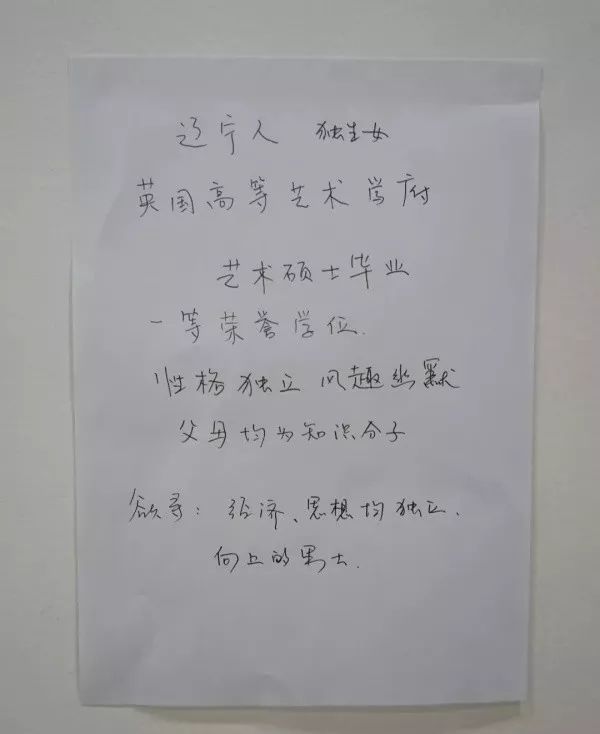 辽宁人 独生女
英国高等艺术学府
艺术硕士毕业
一等荣誉学位.
性格独立 风趣幽默
父母均为知识分子
欲寻: 经济、思想均独立.
向上的男士.